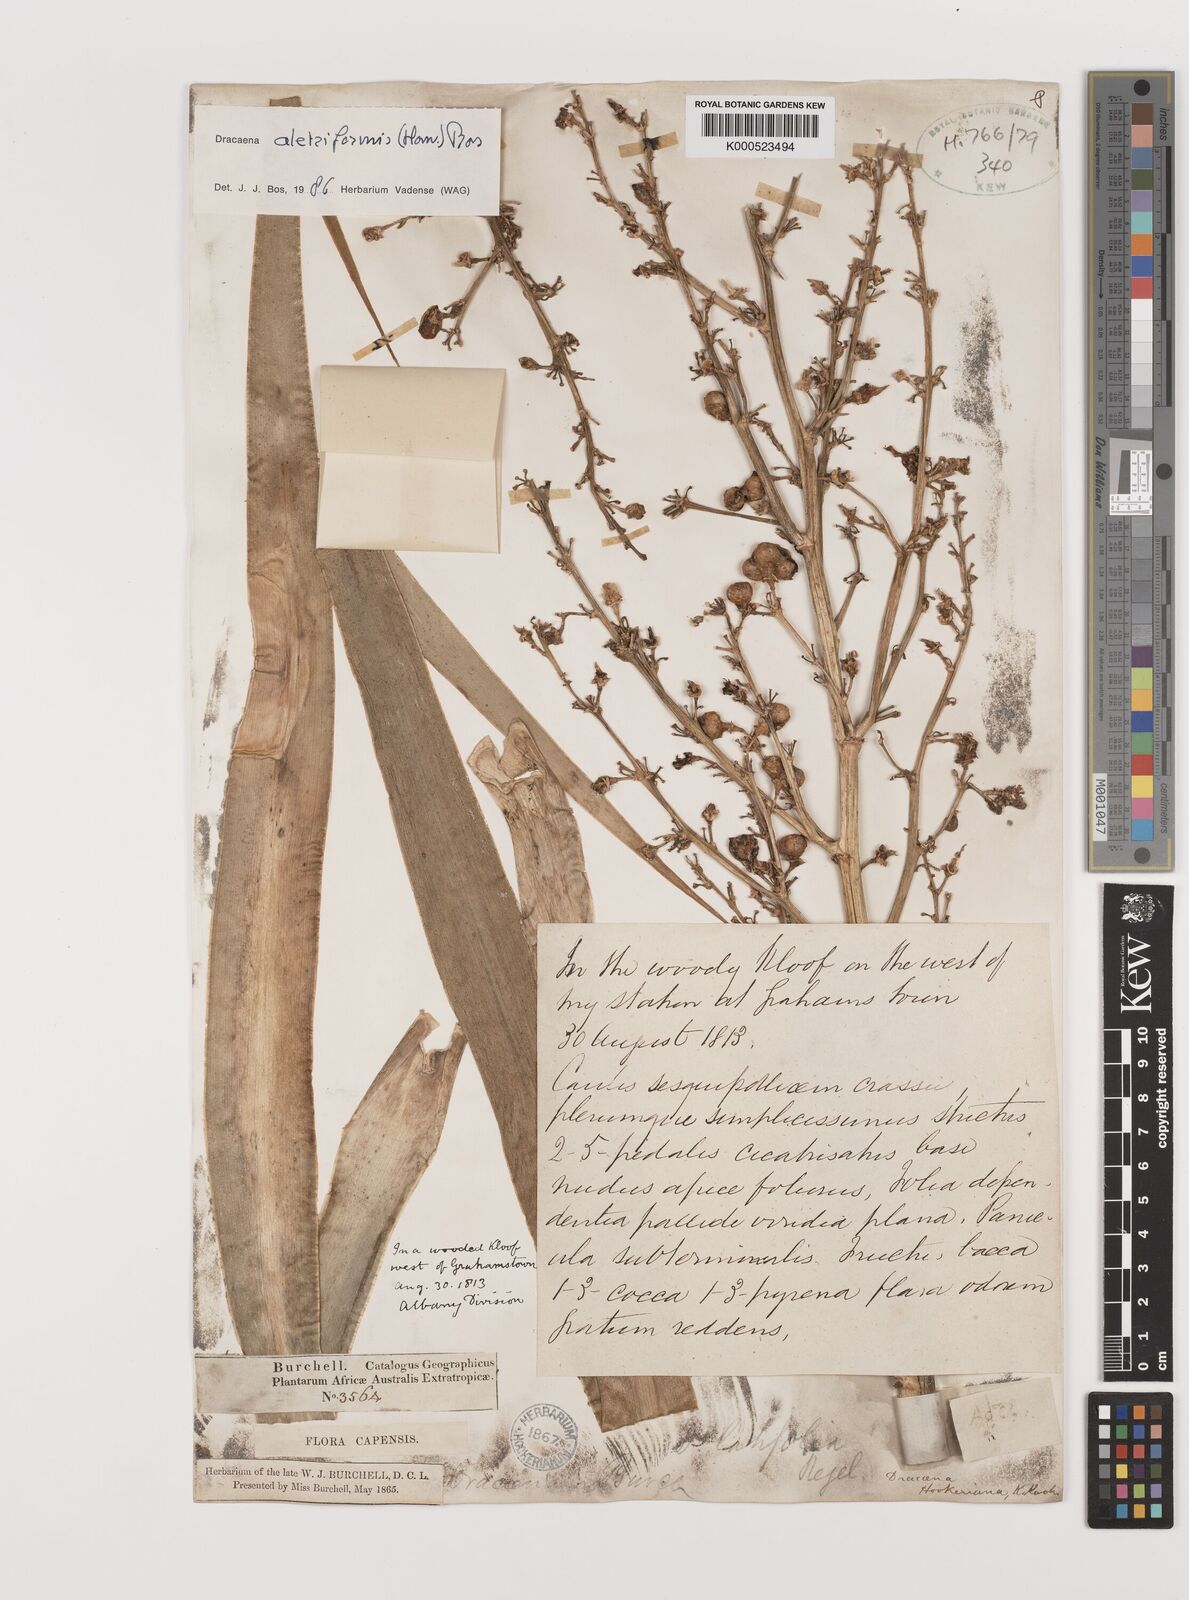 ROYAL BOTANIC GARDENS KEW
K000523494
ROYAL BOTANIC GARDENS
H. 766/79
340
KEW
8
Dracaena aletriformis (Haw.) Bos
Det. J. J. Bos, 1986 Herbarium Vadense (WAG)
In the woody Kloof on the west of
my station at Grahams town
30 August 1813.
Caulis sesquipollicem crassus,
plerumque simplicissimus strictus
2-5-pedalis cicatrisatus basi
nudus apice foliosus, Folia depen-
dentia pallide viridia plana. Panic-
ula subterminalis. Fructus, bacca
1-3-cocca 1-3-pyrena flava odorem
gratum reddens,
In a wooded Kloof
west of Grahamstown
Aug. 30. 1813
Albany Division
Burchell. Catalogus Geographicus
Plantarum Africæ Australis Extratropicæ.
No. 3564
FLORA CAPENSIS.
Herbarium of the late W. J. BURCHELL, D. C. L.
Presented by Miss Burchell, May 1865.
HERBARIUM
1867
HOOKERIANUM
latifolia
Regel
Dracaena
Dracæna
Hookeriana, K. Koch.
inches
centimetres
Don Williams
M001047
Kew
Royal Botanic Gardens
0 1 2 3 4 5 6 7 8 9 10
cm